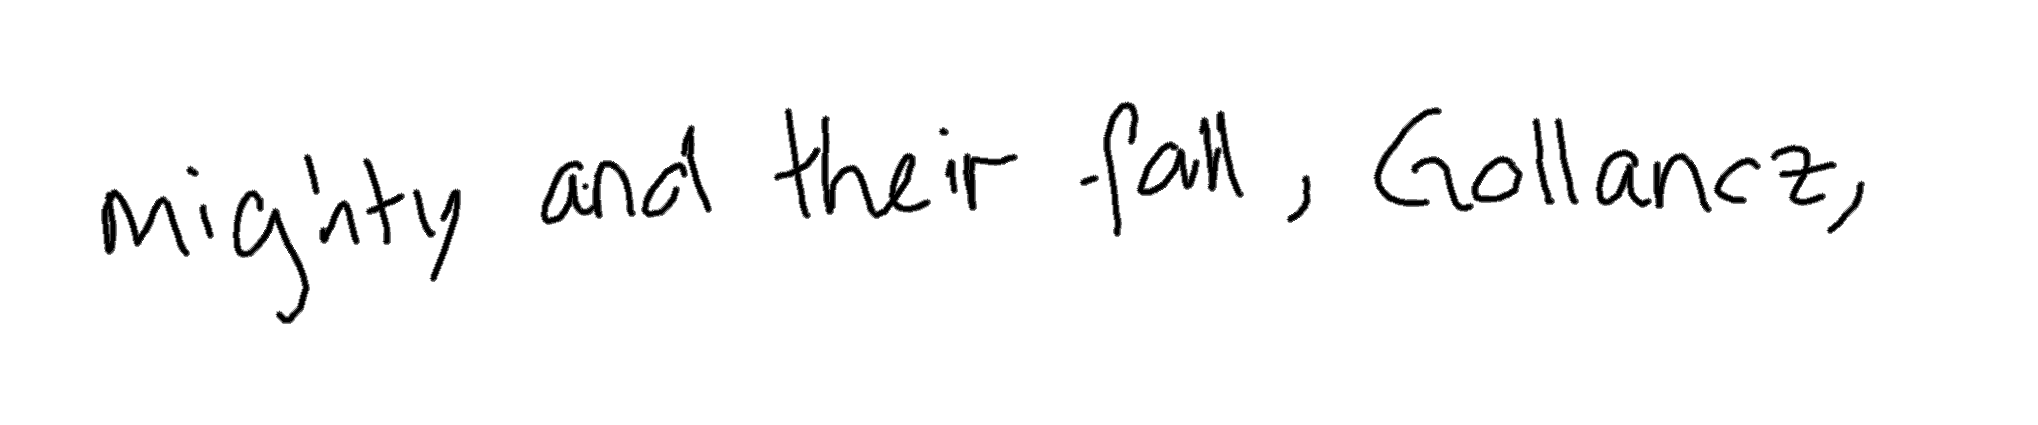 mighty and their fall, Gollancz,